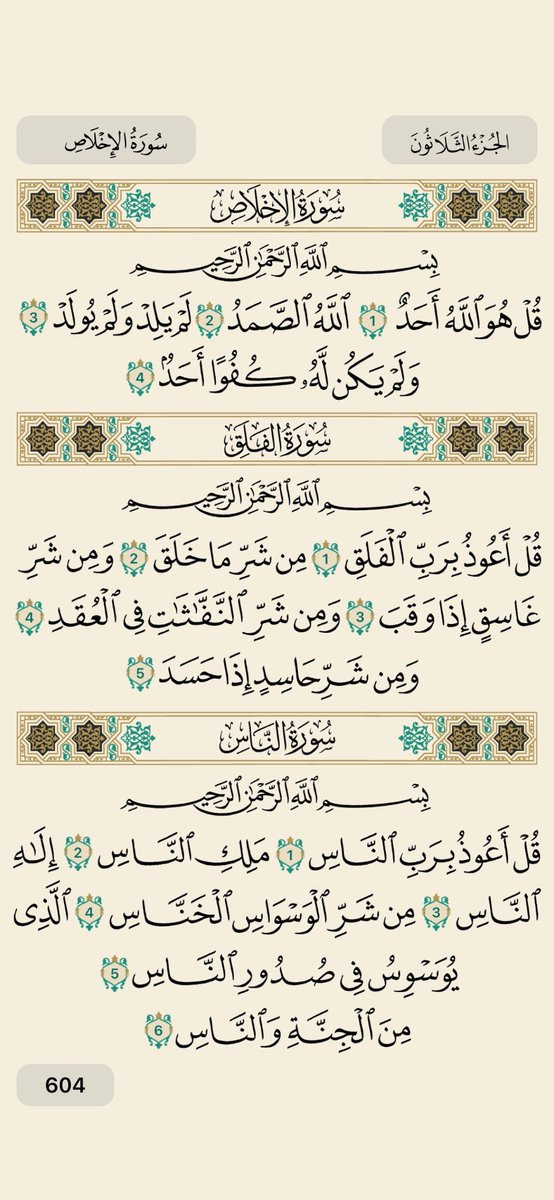 الجُزْءُ الثَّلَاثُونَ
سُورَةُ الإِخْلَاصِ
سُورَةُ الإِخْلَاصِ
بِسْمِ ٱللَّهِ ٱلرَّحْمَٰنِ ٱلرَّحِيمِ
قُلْ هُوَ ٱللَّهُ أَحَدٌ 1 ٱللَّهُ ٱلصَّمَدُ 2 لَمْ يَلِدْ وَلَمْ يُولَدْ 3
وَلَمْ يَكُن لَّهُۥ كُفُوًا أَحَدٌۢ 4
سُورَةُ الفَلَقِ
بِسْمِ ٱللَّهِ ٱلرَّحْمَٰنِ ٱلرَّحِيمِ
قُلْ أَعُوذُ بِرَبِّ ٱلْفَلَقِ 1 مِن شَرِّ مَا خَلَقَ 2 وَمِن شَرِّ
غَاسِقٍ إِذَا وَقَبَ 3 وَمِن شَرِّ ٱلنَّفَّٰثَٰتِ فِى ٱلْعُقَدِ 4
وَمِن شَرِّ حَاسِدٍ إِذَا حَسَدَ 5
سُورَةُ النَّاسِ
بِسْمِ ٱللَّهِ ٱلرَّحْمَٰنِ ٱلرَّحِيمِ
قُلْ أَعُوذُ بِرَبِّ ٱلنَّاسِ 1 مَلِكِ ٱلنَّاسِ 2 إِلَٰهِ
ٱلنَّاسِ 3 مِن شَرِّ ٱلْوَسْوَاسِ ٱلْخَنَّاسِ 4 ٱلَّذِى
يُوَسْوِسُ فِى صُدُورِ ٱلنَّاسِ 5
مِنَ ٱلْجِنَّةِ وَٱلنَّاسِ 6
604